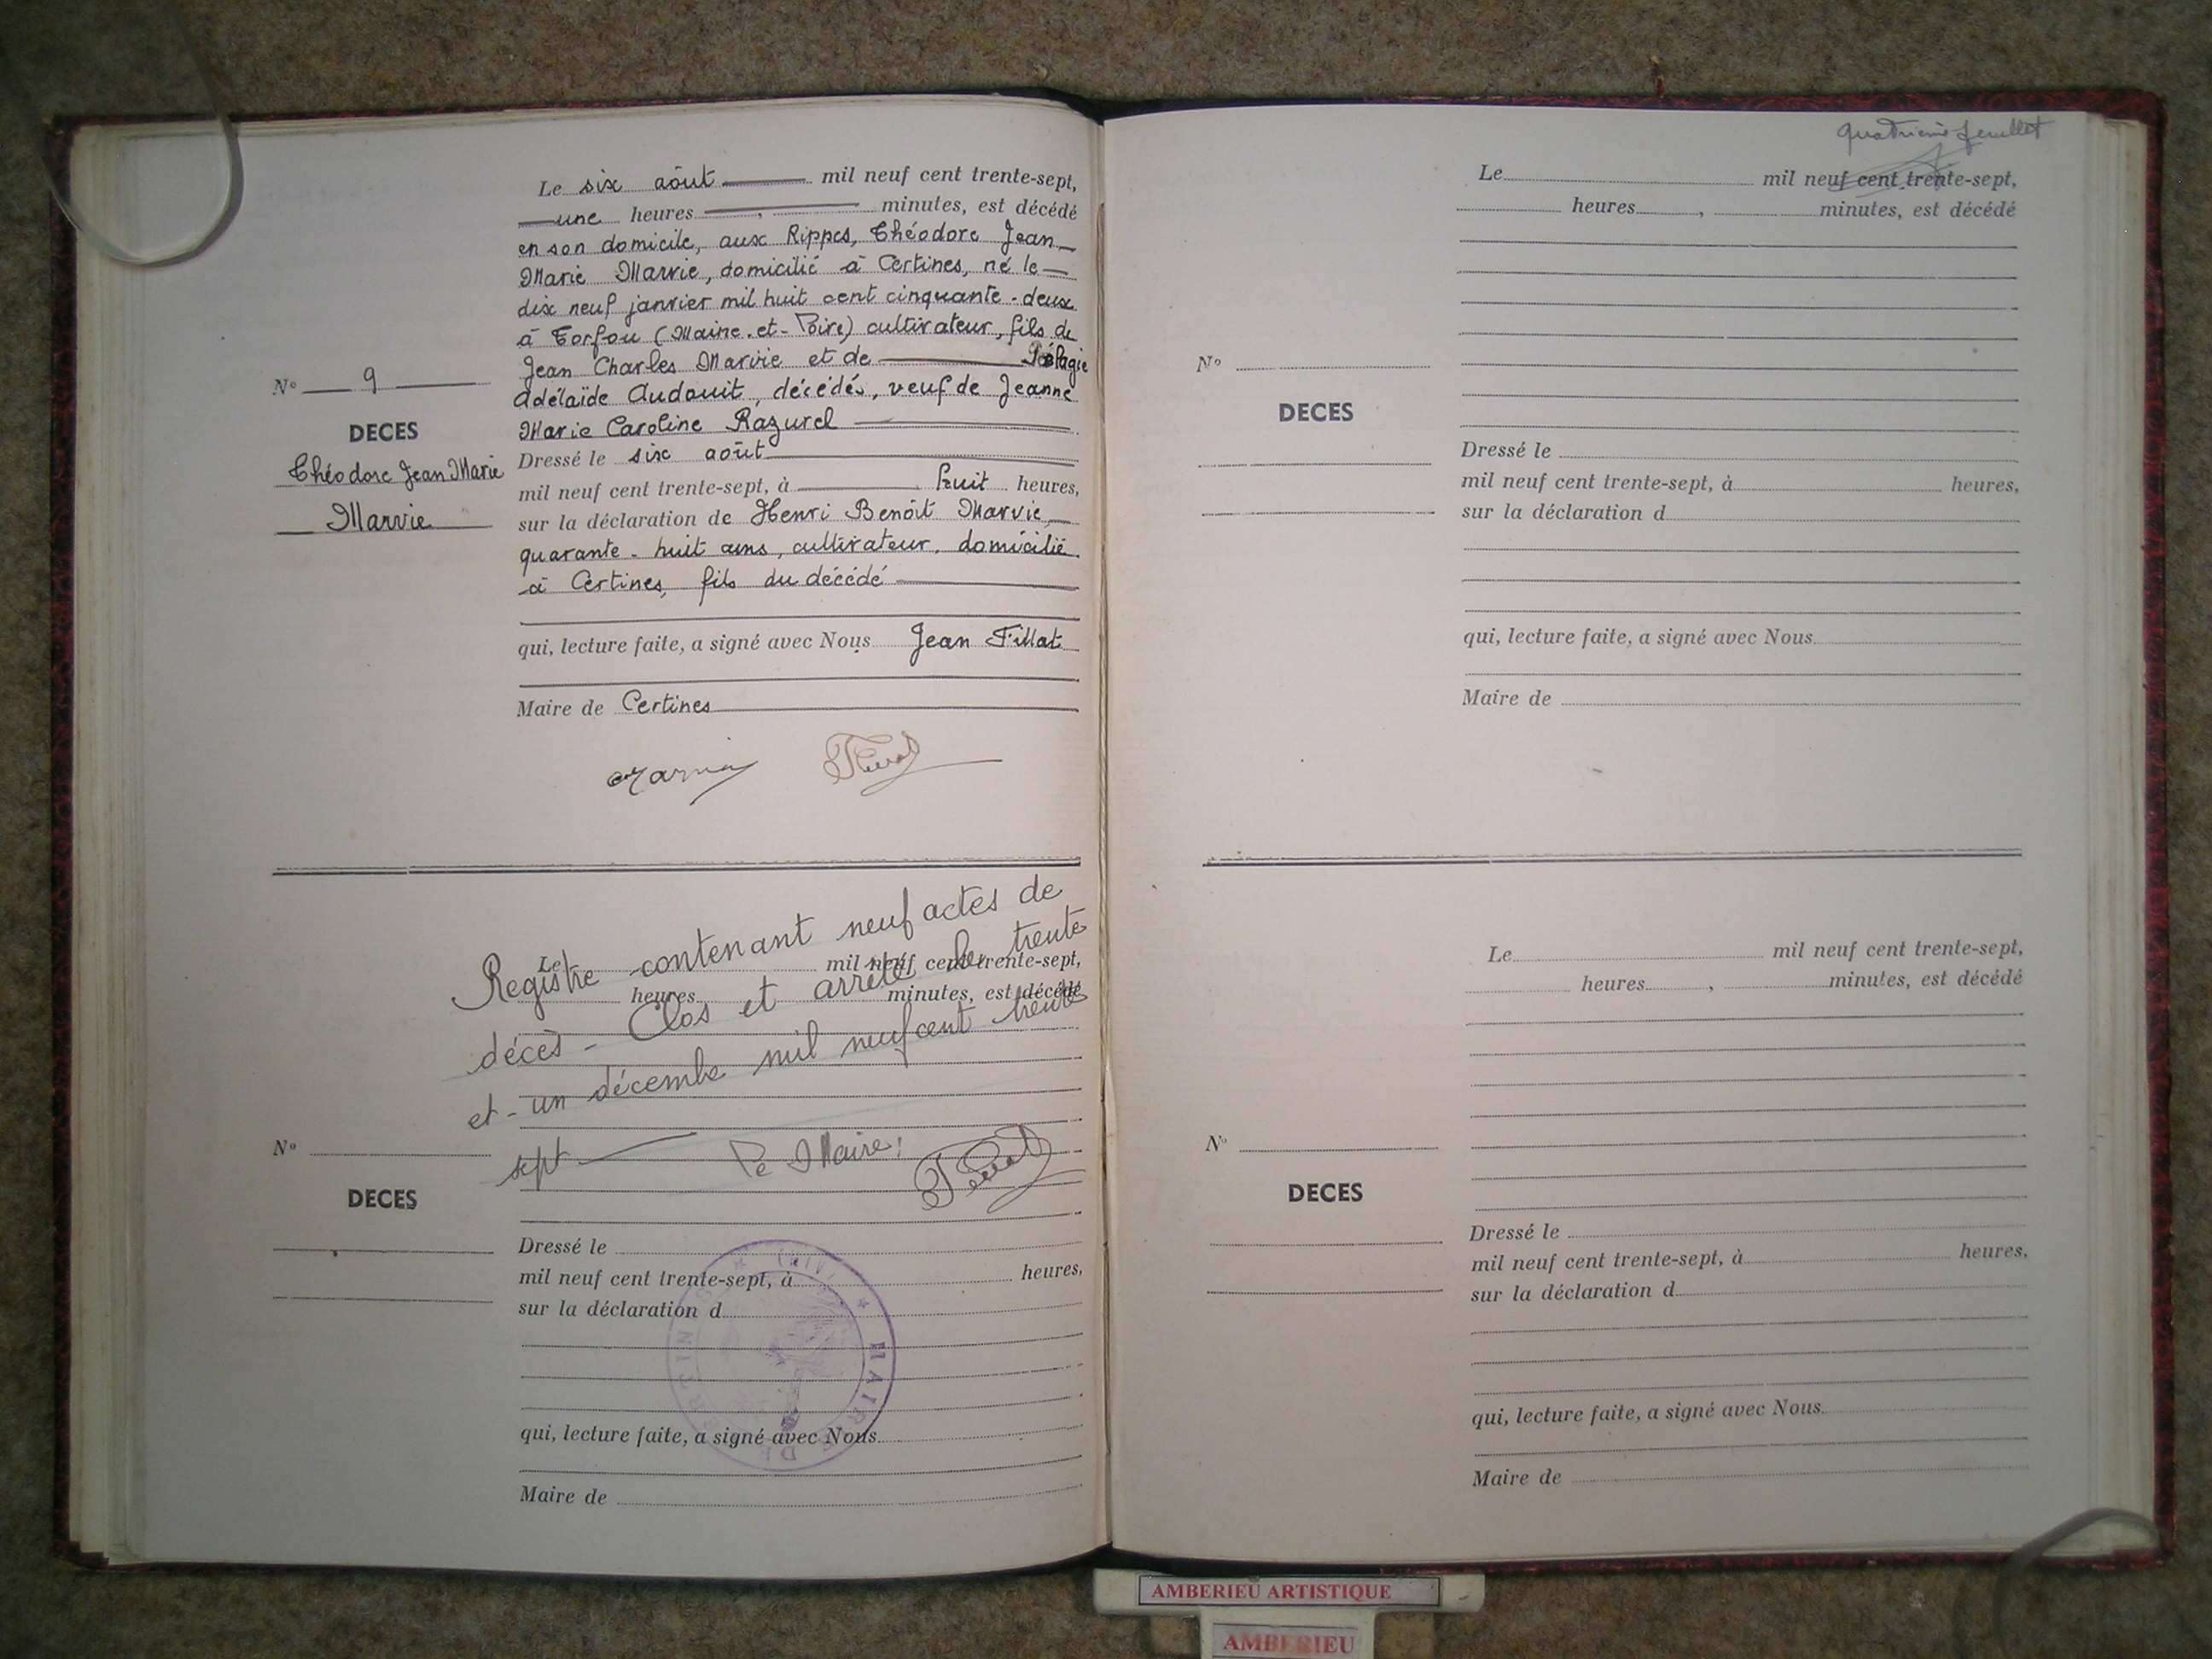 Le six aôut mil neuf cent trente-sept,
une heures , minutes, est décédé
en son domicile, aux Rippes, Théodore Jean
Marie Marvie, domicilié à Certines, né le
dix neuf janvier mil huit cent cinquante-deux
à Torfou (Maine-et-Loire) cultivateur, fils de
Jean Charles Marvie et de Pélagie
Adélaïde Audouit, décédés, veuf de Jeanne
Marie Caroline Razurel
N° 9
DECES
Théodore Jean Marie
Marvie
Dressé le six aôut
mil neuf cent trente-sept, à huit heures,
sur la déclaration de Henri Benôit Marvie,
quarante-huit ans, cultivateur, domicilié
à Certines, fils du décédé
qui, lecture faite, a signé avec Nous Jean Tillat
Maire de Certines
Registre contenant neuf actes de
décès - Clos et arrêté le trente
et-un décembre mil neuf cent trente
sept Le Maire:
Le mil neuf cent trente-sept,
heures minutes, est décédé
N°
DECES
Dressé le
mil neuf cent trente-sept, à heures,
sur la déclaration d
qui, lecture faite, a signé avec Nous
Maire de
MAIRIE DE CERTINES (AIN)
quatrième feuillet
Le mil neuf cent trente-sept,
heures , minutes, est décédé
N°
DECES
Dressé le
mil neuf cent trente-sept, à heures,
sur la déclaration d
qui, lecture faite, a signé avec Nous
Maire de
Le mil neuf cent trente-sept,
heures , minutes, est décédé
N°
DECES
Dressé le
mil neuf cent trente-sept, à heures,
sur la déclaration d
qui, lecture faite, a signé avec Nous
Maire de
AMBERIEU ARTISTIQUE
AMBERIEU